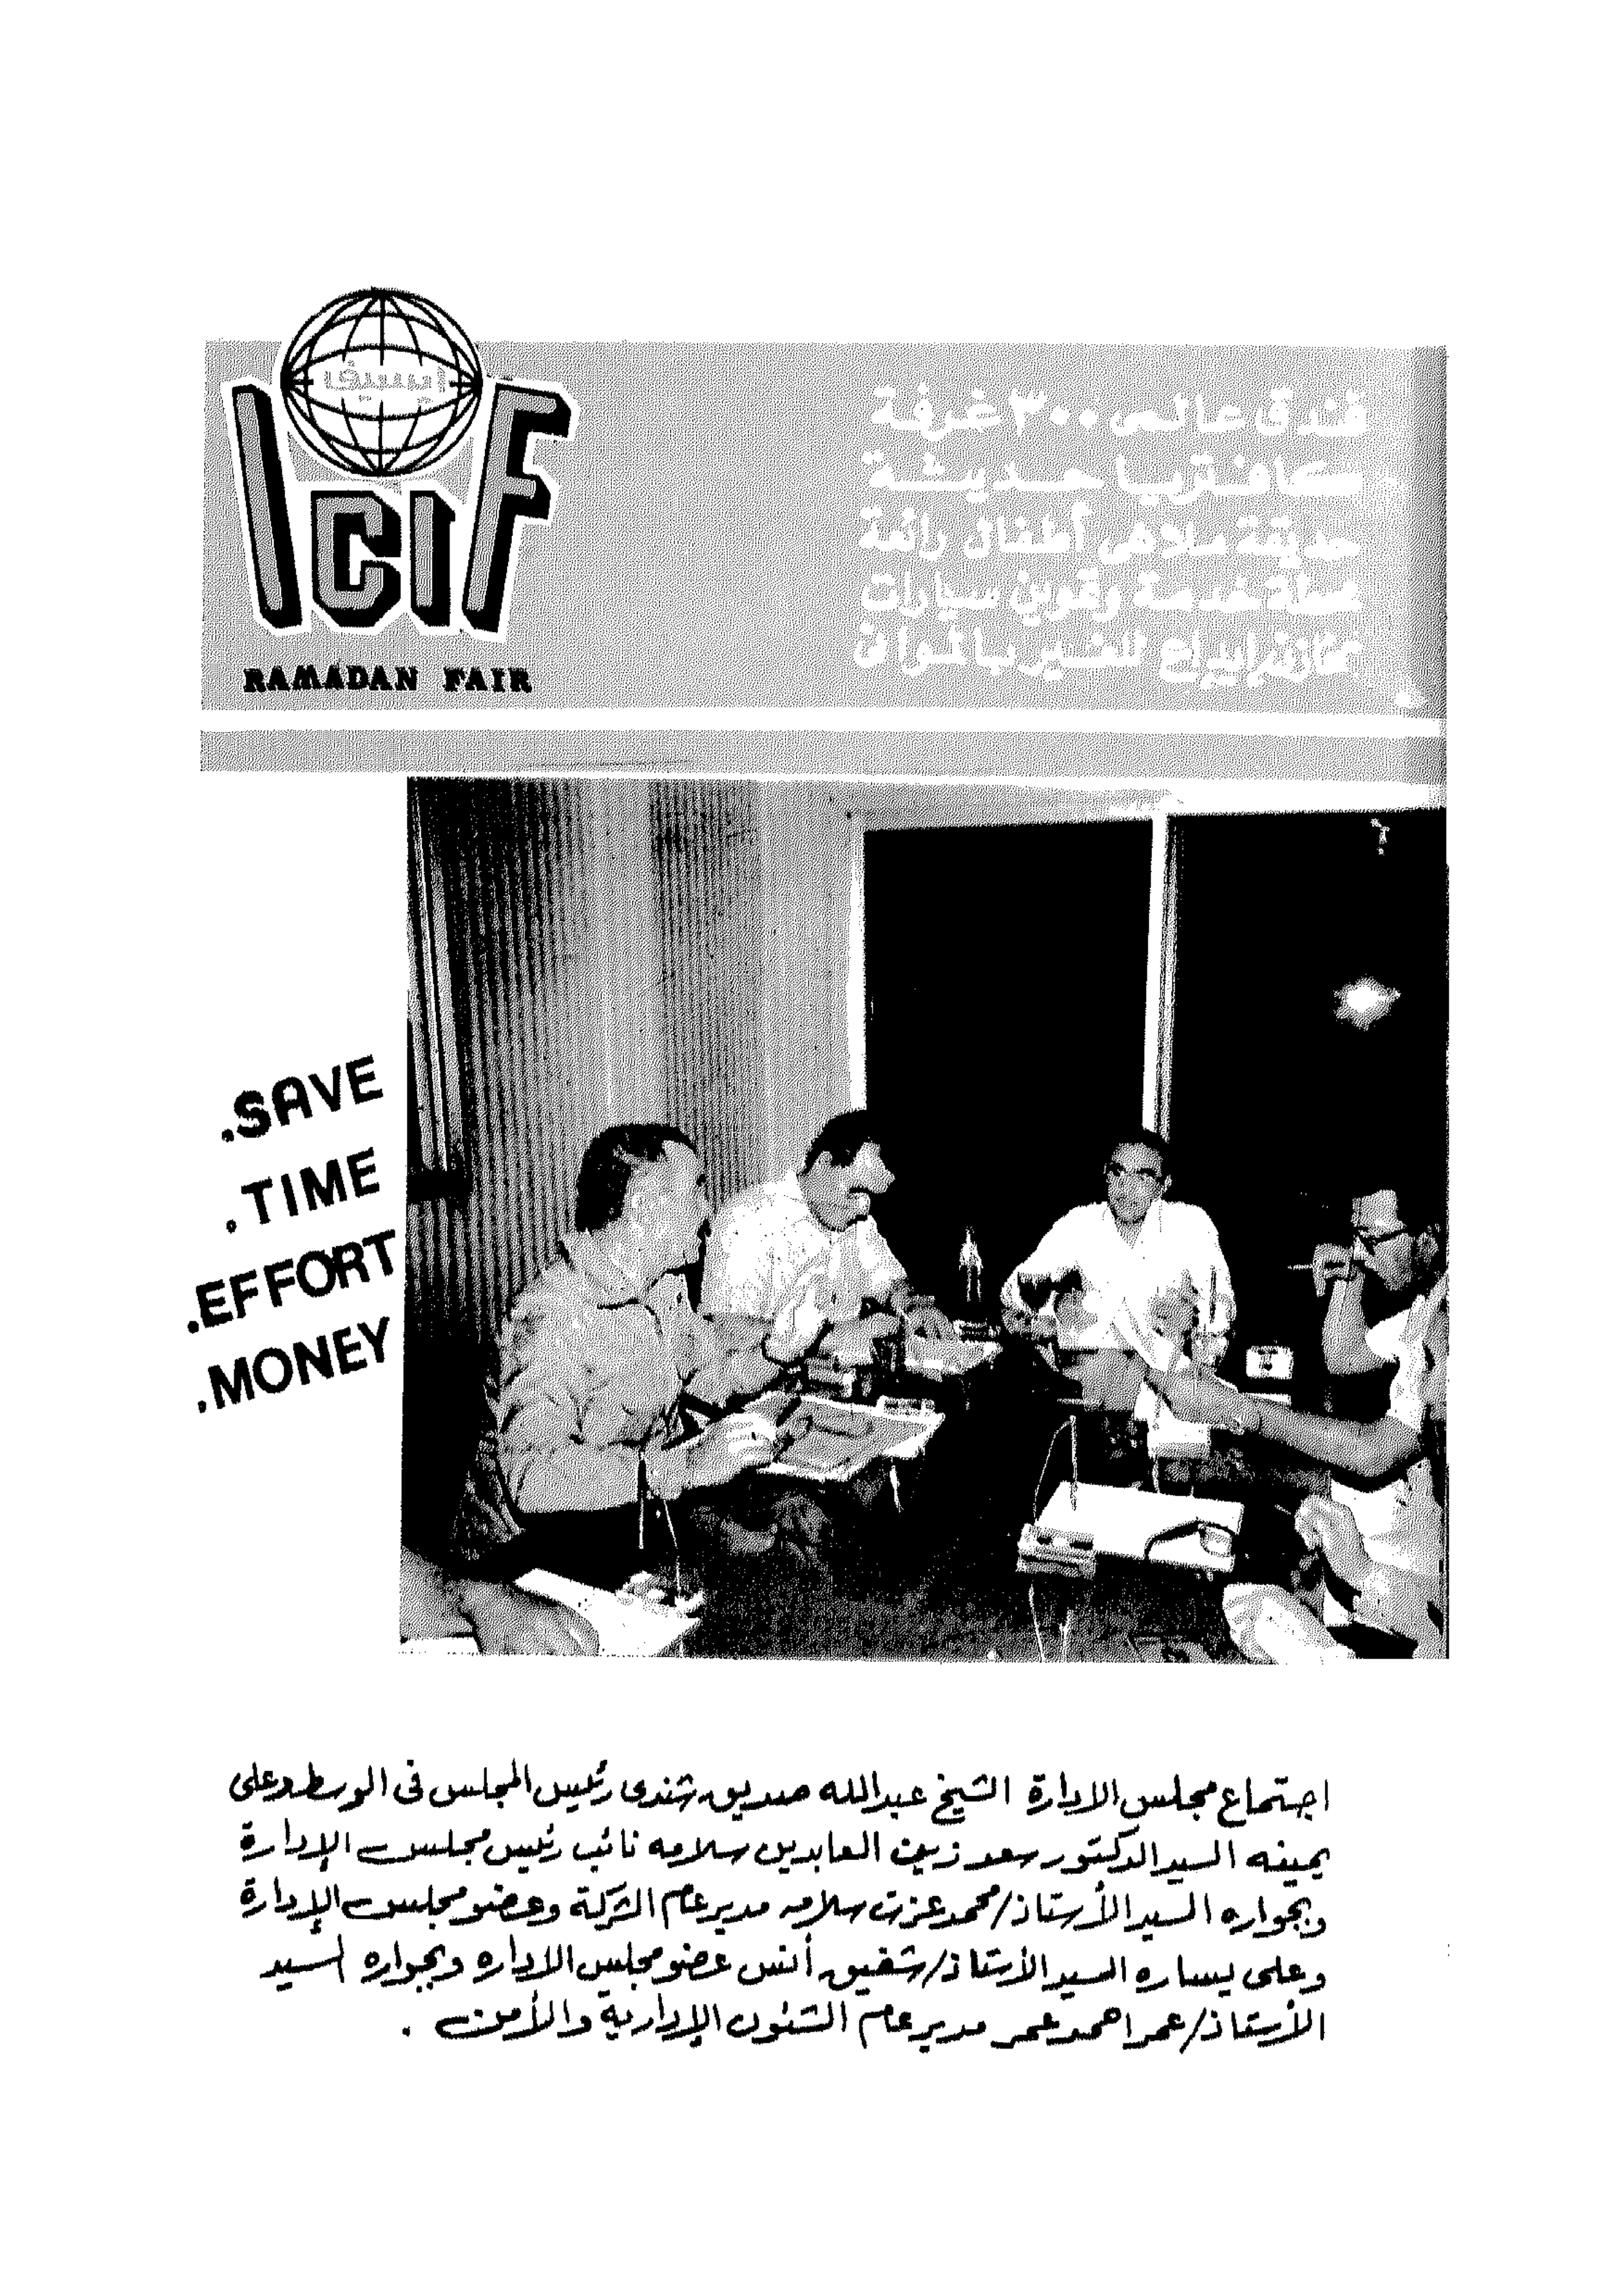 ايسيف
ICIF
RAMADAN FAIR
فندق عالمى ٣٠٠ غرفة
كافتريا حديثة
حديقة ملاهى أطفال رائعة
محطة خدمة وتموين سيارات
للغير بالموانى
.SAVE
.TIME
.EFFORT
.MONEY
اجتماع مجلس الادارة الشيخ عبدالله صديق شندى رئيس المجلس فى الوسط وعلى
يمينه السيد الدكتور سعد زين العابدين سلامه نائب رئيس مجلس الإدارة
وبجواره السيد الأستاذ/محمد عزت سلامه مدير عام الشركة وعضو مجلس الإدارة
وعلى يساره السيد الأستاذ/شفيق أنس عضو مجلس الاداره وبجواره السيد
الأستاذ/عمر احمد عمر مدير عام الشئون الإدارية والأمن .